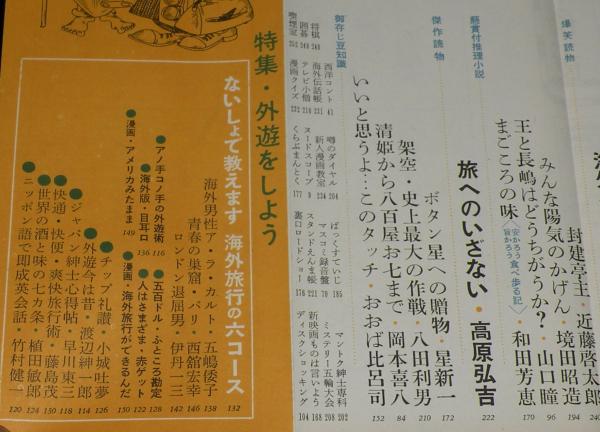 爆笑読物
封建亭主・近藤啓太郎 240
みんな陽気のかげん・境田昭造 194
王と長嶋はどうちがうか?・山口瞳 96
まごころの味〈安かろう旨かろう食べ歩る記〉・和田芳恵 170
懸賞付推理小説
旅へのいざない・高原弘吉 222
傑作読物
ボタン星への贈物・星新一 172
架空・史上最大の作戦・八田利男 210
清姫から八百屋お七まで・岡本喜八 84
いいと思うよ…このタッチ・おおば比呂司 152
御存じ豆知識
西洋コント 41
海外伝話帳 231
テレビ小僧 216
漫画クイズ 232
将棋 248
囲碁 248
喫煙室 252
噂のダイヤル 204
新人漫画教室 234
ヌードスコープ 9
くらぶまんとく 177
ぱっくすていじ 185
マスコミ録音盤 70
スタンドえんま帳 221
裏口ロードショー 176
マントク紳士専科 202
ミステリー五輪大会 208
新映画ものは言いよう 168
ディスクショッキング 104
特集・外遊をしよう
ないしょで教えます 海外旅行の六コース 132
海外男性ア・ラ・カルト・五嶋倭子 138
青春の巣窟・パリ・西舘宏幸 146
ロンドン退屈男・伊丹一三 142
●アノ手コノ手の外遊術 116
●海外版・目耳口 136
●漫画・アメリカみたまま 149
●五百ドル・ふところ勘定 128
●人はさまざま・赤ゲット 122
●漫画・海外旅行ができるんだ 150
●チップ礼讃・小城吐夢 126
●外遊今は昔・渡辺紳一郎 114
●ジャパン紳士心得帖・早川東三 118
●快適・快便・爽快旅行術・藤島茂 150
●世界の酒と味の七カ条・植田敏郎 124
●ニッポン語で即成英会話・竹村健一 120